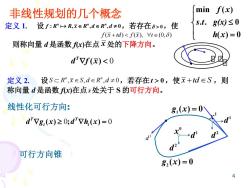 非线性规划的几个概念
min f(x)
s.t. g(x) ≤ 0
h(x) = 0
定义 1. 设 f: Rⁿ → R, x̄ ∈ Rⁿ, d ∈ Rⁿ, d ≠ 0, 若存在 δ > 0, 使
f(x̄ + td) < f(x̄), ∀t ∈ (0, δ)
则称向量 d 是函数 f(x)在点 x̄ 处的下降方向。
dᵀ∇f(x̄) < 0
定义 2. 设 S ⊂ Rⁿ, x̄ ∈ S, d ∈ Rⁿ, d ≠ 0, 若存在 t > 0, 使 x̄ + td ∈ S, 则
称向量 d 是函数 f(x)在点 x 处关于 S 的可行方向。
线性化可行方向:
dᵀ∇gᵢ(x) ≥ 0; dᵀ∇hᵢ(x) = 0
可行方向锥
g₁(x) = 0
x⁰
d¹
d²
g₂(x) = 0
4